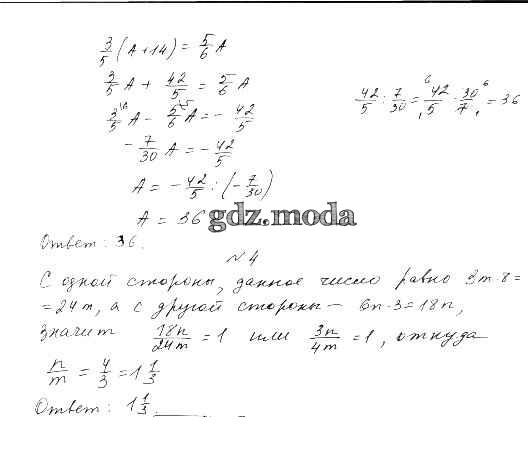 3/5 (A + 14) = 5/6 A
3/5 A + 42/5 = 5/6 A
42/5 : 7/30 = 42/5 · 30/7 = 36
3/5 A - 5/6 A = - 42/5
- 7/30 A = - 42/5
A = - 42/5 : (- 7/30)
A = 36
gdz.moda
Ответ: 36.
N 4
С одной стороны, данное число равно 3m·8=
= 24m, а с другой стороны — 6n·3=18n,
значит 18n/24m = 1 или 3n/4m = 1, откуда
n/m = 4/3 = 1 1/3
Ответ: 1 1/3.